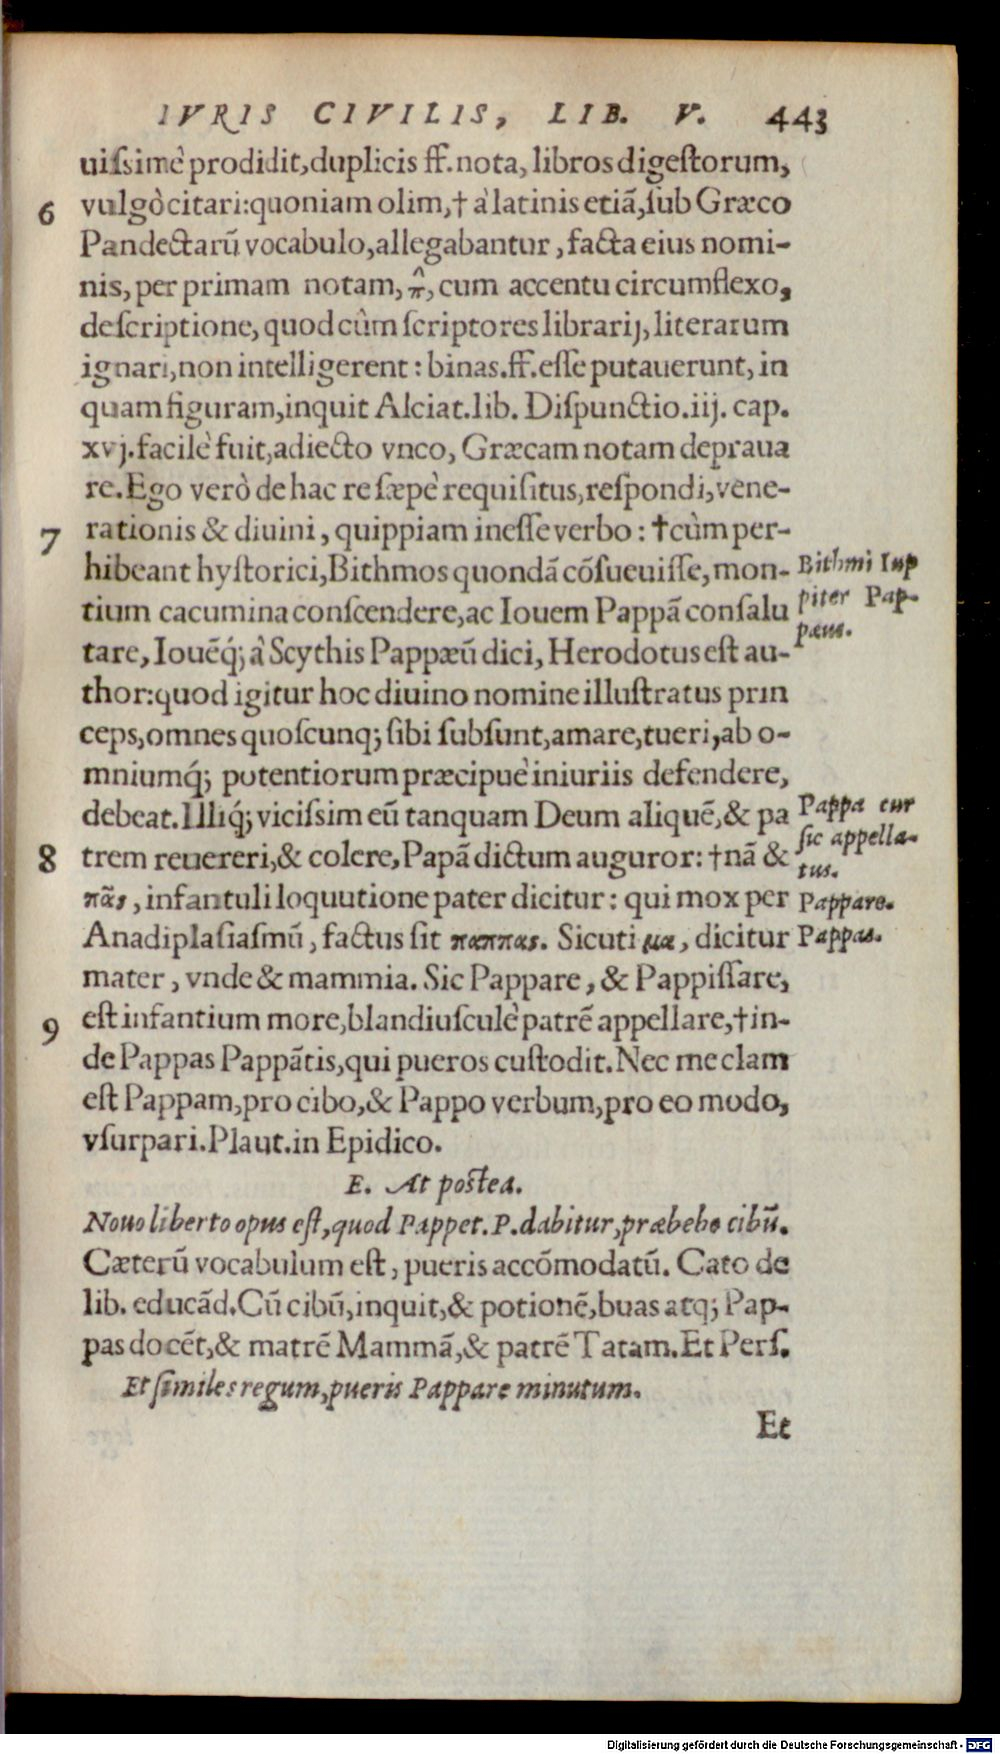 IVRIS CIVILIS, LIB. V. 443
uiſsimè prodidit, duplicis ff. nota, libros digeſtorum,
6 vulgò citari: quoniam olim, † à latinis etiã, ſub Græco
Pandectarũ vocabulo, allegabantur, facta eius nomi-
nis, per primam notam, π̂, cum accentu circumflexo,
deſcriptione, quod cùm ſcriptores librarij, literarum
ignari, non intelligerent: binas. ff. eſſe putauerunt, in
quam figuram, inquit Alciat. lib. Diſpunctio. iij. cap.
xvj. facilè fuit, adiecto vnco, Græcam notam depraua
re. Ego verò de hac re ſæpè requiſitus, reſpondi, vene-
7 rationis & diuini, quippiam ineſſe verbo: † cùm per-
hibeant hyſtorici, Bithmos quondã cõſueuiſſe, mon-
Bithmi Iup
tium cacumina conſcendere, ac Iouem Pappã conſalu
piter Pap-
tare, Iouẽq́; à Scythis Pappæũ dici, Herodotus eſt au-
pæus.
thor: quod igitur hoc diuino nomine illuſtratus prin
ceps, omnes quoſcunq; ſibi ſubſunt, amare, tueri, ab o-
mniumq́; potentiorum præcipuè iniuriis defendere,
debeat. Illiq́; viciſsim eũ tanquam Deum aliquẽ, & pa
Pappa cur
ſic appella-
8 trem reuereri, & colere, Papã dictum auguror: † nã &
tus.
πᾶς, infantuli loquutione pater dicitur: qui mox per
Pappare.
Anadiplaſiaſmũ, factus ſit παππας. Sicuti μα, dicitur
Pappas.
mater, vnde & mammia. Sic Pappare, & Pappiſſare,
9 eſt infantium more, blandiuſculè patrẽ appellare, † in-
de Pappas Pappãtis, qui pueros cuſtodit. Nec me clam
eſt Pappam, pro cibo, & Pappo verbum, pro eo modo,
vſurpari. Plaut. in Epidico.
E. At poſtea.
Nouo liberto opus eſt, quod Pappet. P. dabitur, præbebo cibũ.
Cæterũ vocabulum eſt, pueris accõmodatũ. Cato de
lib. educãd. Cũ cibũ, inquit, & potionẽ, buas atq; Pap-
pas docẽt, & matrẽ Mammã, & patrẽ Tatam. Et Perſ.
Et ſimiles regum, pueris Pappare minutum.
Et
Digitalisierung gefördert durch die Deutsche Forschungsgemeinschaft - DFG